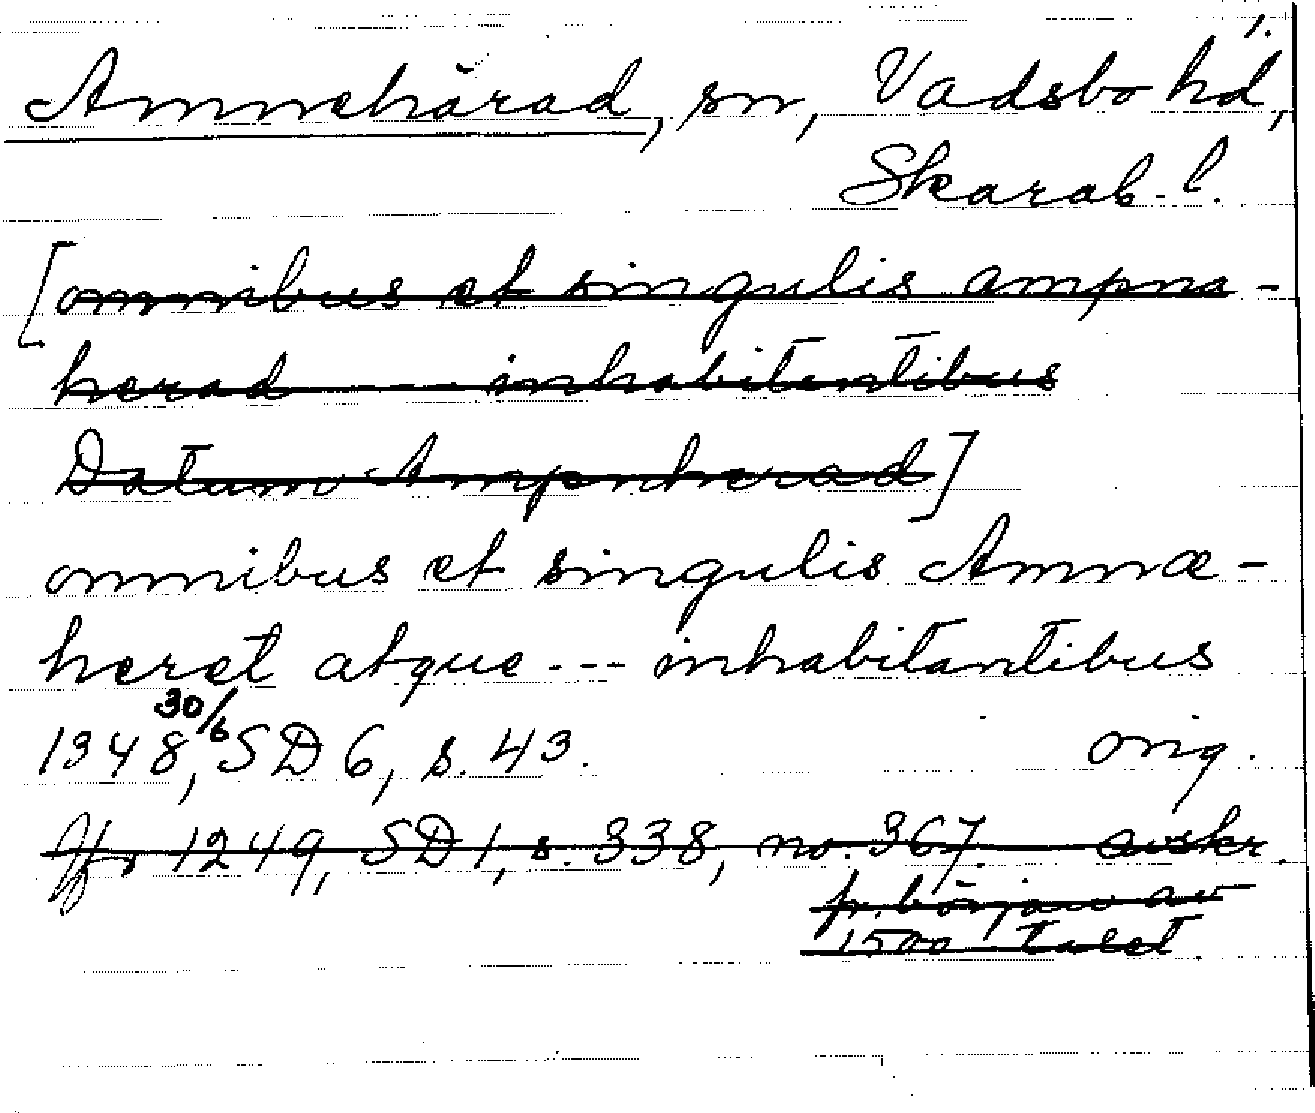 1.
Amnehärad, sn, Vadsbo hd,
Skarab. l.
[omnibus et singulis ampna-
herad --- inhabitentibus
Datum Ampnherad]
omnibus et singulis Amnæ-
heret atque --- inhabitantibus
1348 30/6, SD 6, s. 43. orig.
Jfr 1249, SD 1, s. 338, no. 367. avskr.
fr. början av
1500 talet.